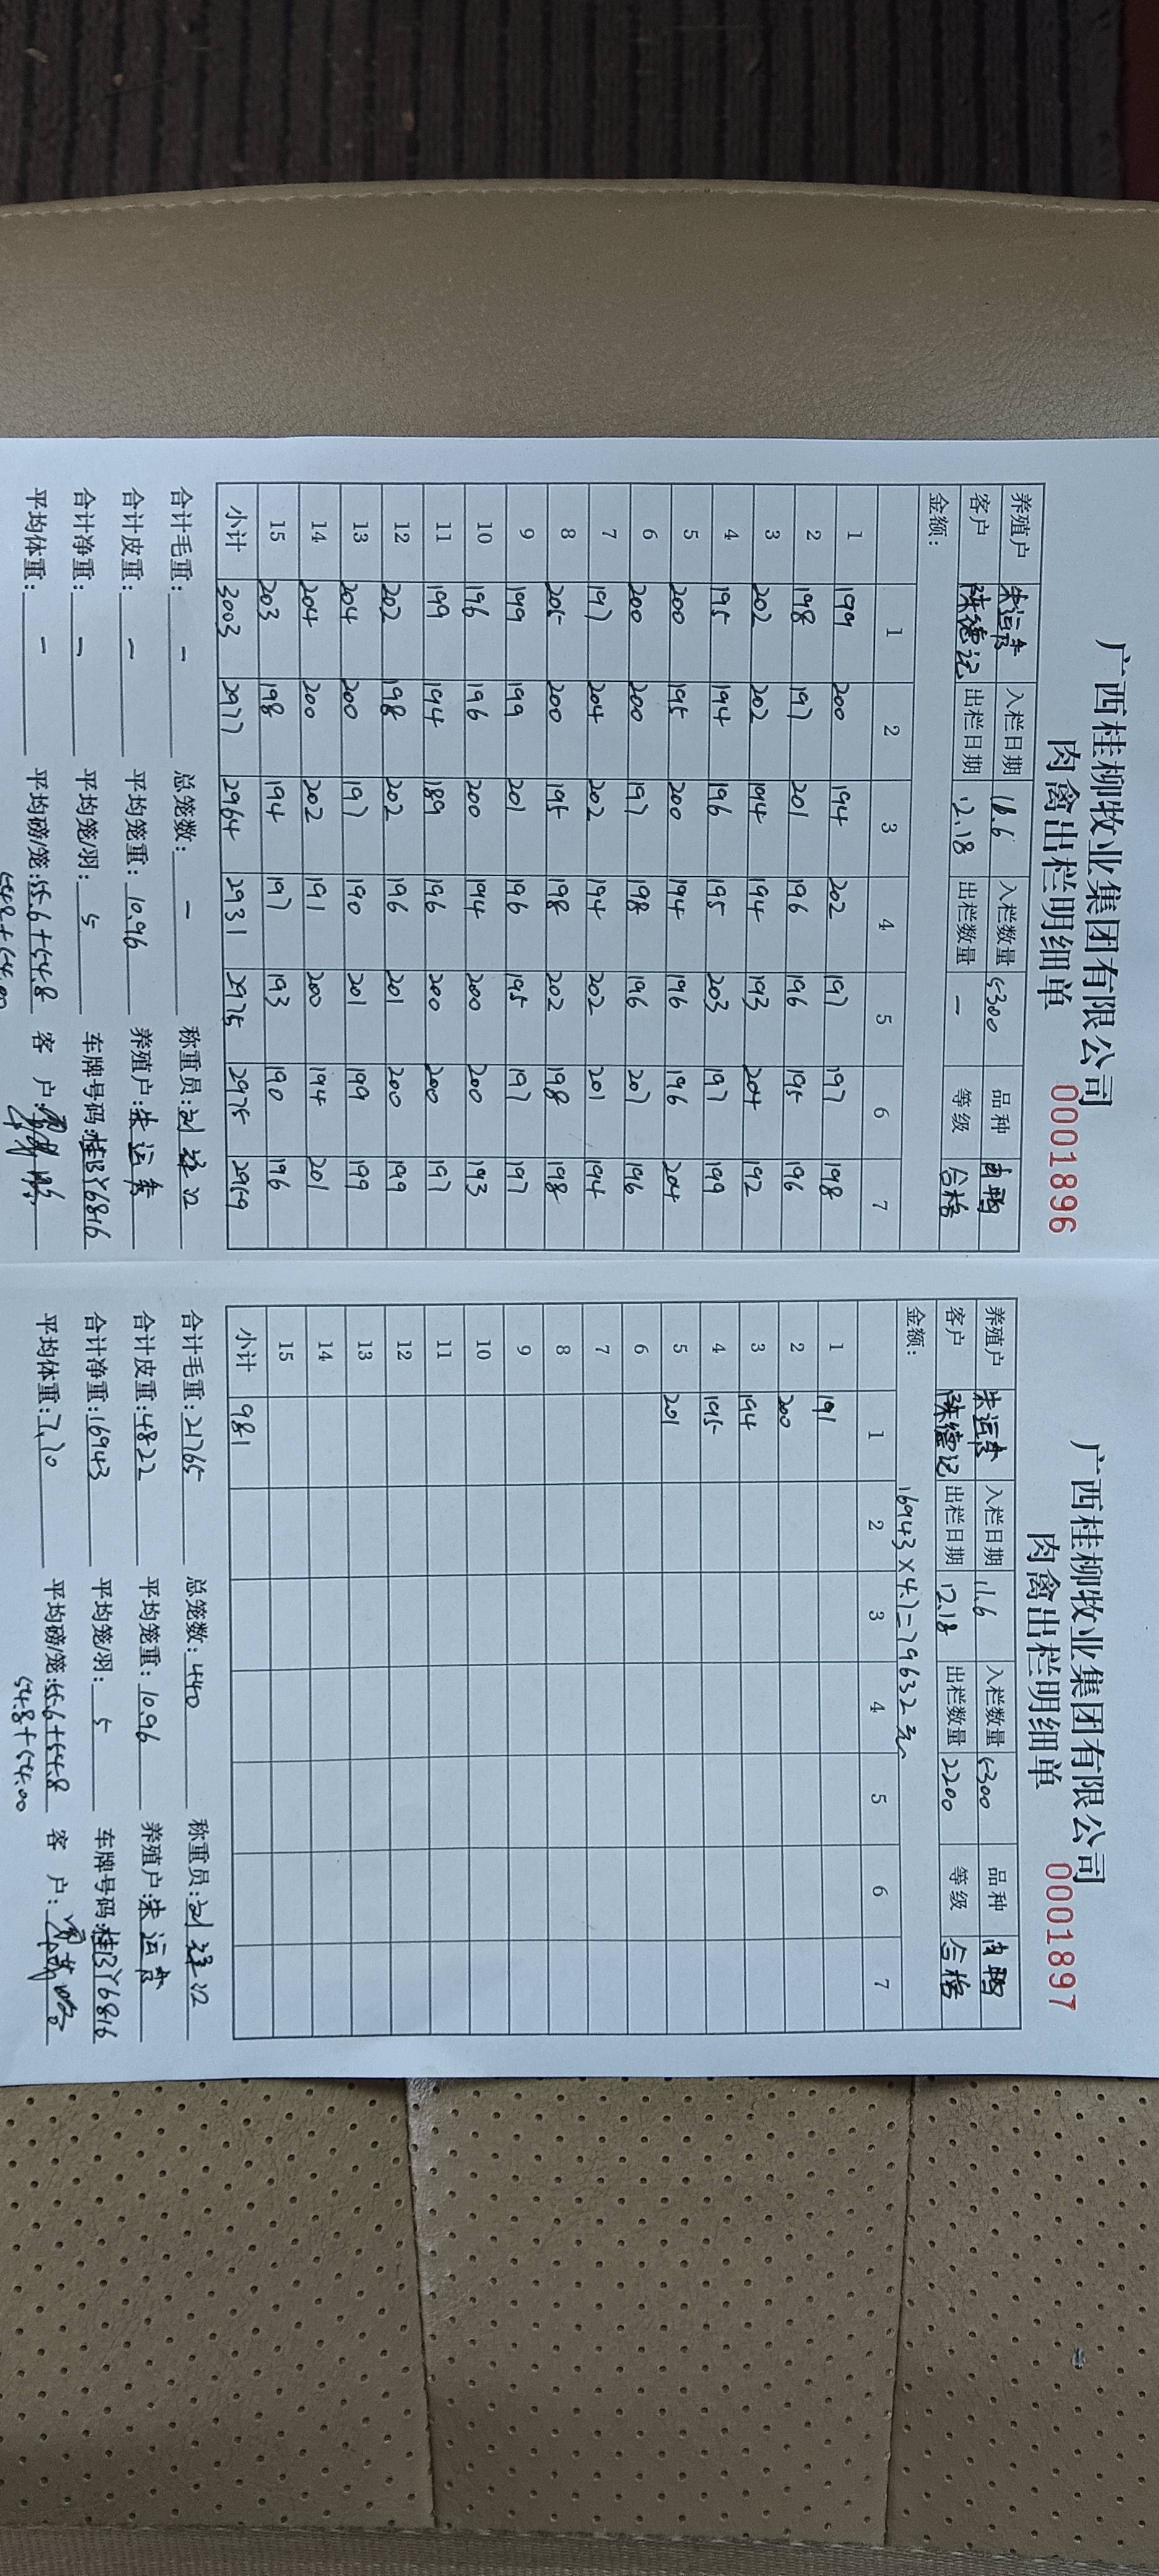 广西桂柳牧业集团有限公司
肉禽出栏明细单 00001896
养殖户 朱运秀 入栏日期 11.6 入栏数量 5300 品种 肉鸭
客户 陈德记 出栏日期 12.18 出栏数量 — 等级 合格
金额：
1 2 3 4 5 6 7
1 199 200 194 202 197 197 198
2 198 197 201 196 196 195 196
3 202 202 194 194 193 204 192
4 195 194 196 195 203 197 199
5 200 195 200 194 196 196 204
6 200 200 197 198 196 207 196
7 197 204 202 194 202 201 194
8 205 200 195 198 202 198 198
9 199 199 201 196 195 197 197
10 196 196 200 194 200 200 193
11 199 194 189 196 200 200 197
12 202 198 202 196 201 200 199
13 204 200 197 190 201 199 199
14 204 200 202 191 200 194 201
15 203 198 194 197 193 190 196
小计 3003 2977 2964 2931 2975 2975 2959
合计毛重：— 总笼数：— 称重员：
合计皮重：— 平均笼重：10.96 养殖户：朱运秀
合计净重：— 平均笼/羽：5 车牌号码：桂BY6816
平均体重：— 平均磅/笼：55.6+54.8 客 户：
54.8+54.00
广西桂柳牧业集团有限公司
肉禽出栏明细单 00001897
养殖户 朱运秀 入栏日期 11.6 入栏数量 5300 品种 肉鸭
客户 陈德记 出栏日期 12.18 出栏数量 2200 等级 合格
金额： 16943×4.7=79632元
1 2 3 4 5 6 7
1 191
2 200
3 194
4 195
5 201
6
7
8
9
10
11
12
13
14
15
小计 981
合计毛重：21765 总笼数：440 称重员：
合计皮重：4822 平均笼重：10.96 养殖户：朱运秀
合计净重：16943 平均笼/羽：5 车牌号码：桂BY6816
平均体重：7.70 平均磅/笼：55.6+54.8 客 户：
54.8+54.00